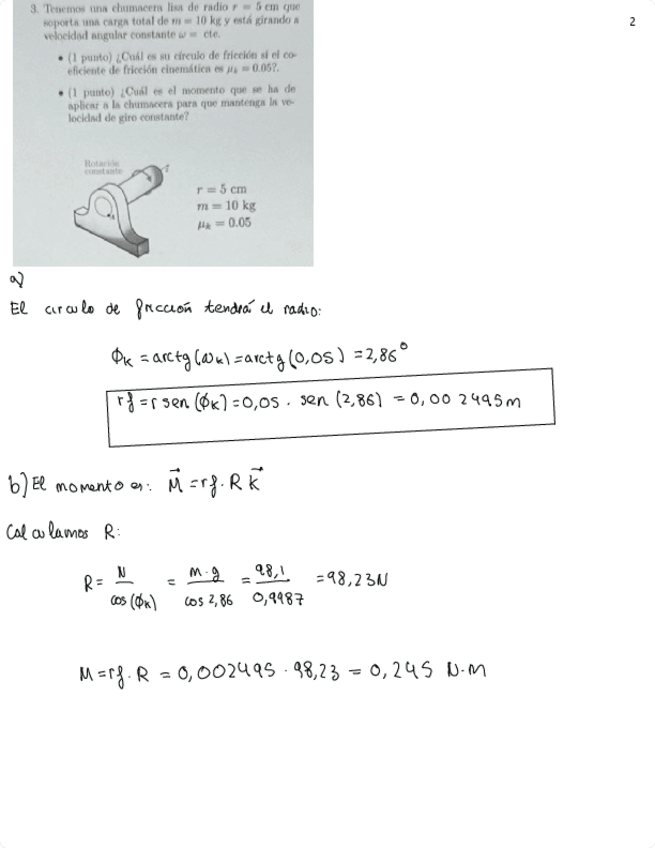 2
3. Tenemos una chumacera lisa de radio r = 5 cm que
soporta una carga total de m = 10 kg y está girando a
velocidad angular constante ω = cte.
• (1 punto) ¿Cuál es su círculo de fricción si el co-
eficiente de fricción cinemática es μk = 0.05?.
• (1 punto) ¿Cuál es el momento que se ha de
aplicar a la chumacera para que mantenga la ve-
locidad de giro constante?
Rotación
constante
r = 5 cm
m = 10 kg
μk = 0.05
a)
El circulo de fricción tendrá el radio:
Φk = arctg(ωk) = arctg(0,05) = 2,86°
rf = r sen(Φk) = 0,05 . sen (2,86) = 0,002495m
b) El momento es: M⃗ = rf . R k⃗
Calculamos R:
R = N / cos(Φk) = m·g / cos 2,86 = 98,1 / 0,9987 = 98,23N
M = rf . R = 0,002495 . 98,23 = 0,245 N.m